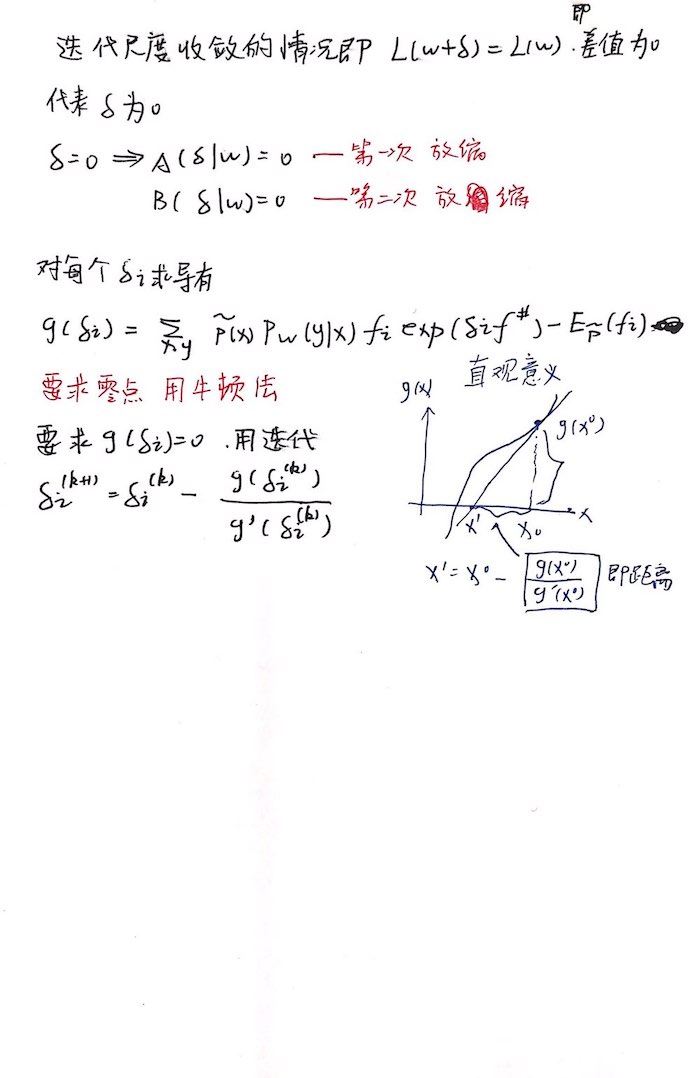 即
迭代尺度收敛的情况即 L(w+δ) = L(w) . 差值为0
代表 δ 为 0
δ=0 ⇒ A(δ|w) = 0 — 第一次 放缩
B(δ|w)=0 — 第二次 放缩
对每个 δi 求导有
g(δi) = ∑x,y p̃(x) Pw(y|x) fi exp(δi f^#) - Ep̃(fi)
要求零点 用牛顿法
直观意义
g(x)
g(x⁰)
要求 g(δi)=0 . 用迭代
δi^(k+1) = δi^(k) - g(δi^(k)) / g'(δi^(k))
x' x₀ x
x' = x⁰ - g(x⁰) / g'(x⁰) 即距离